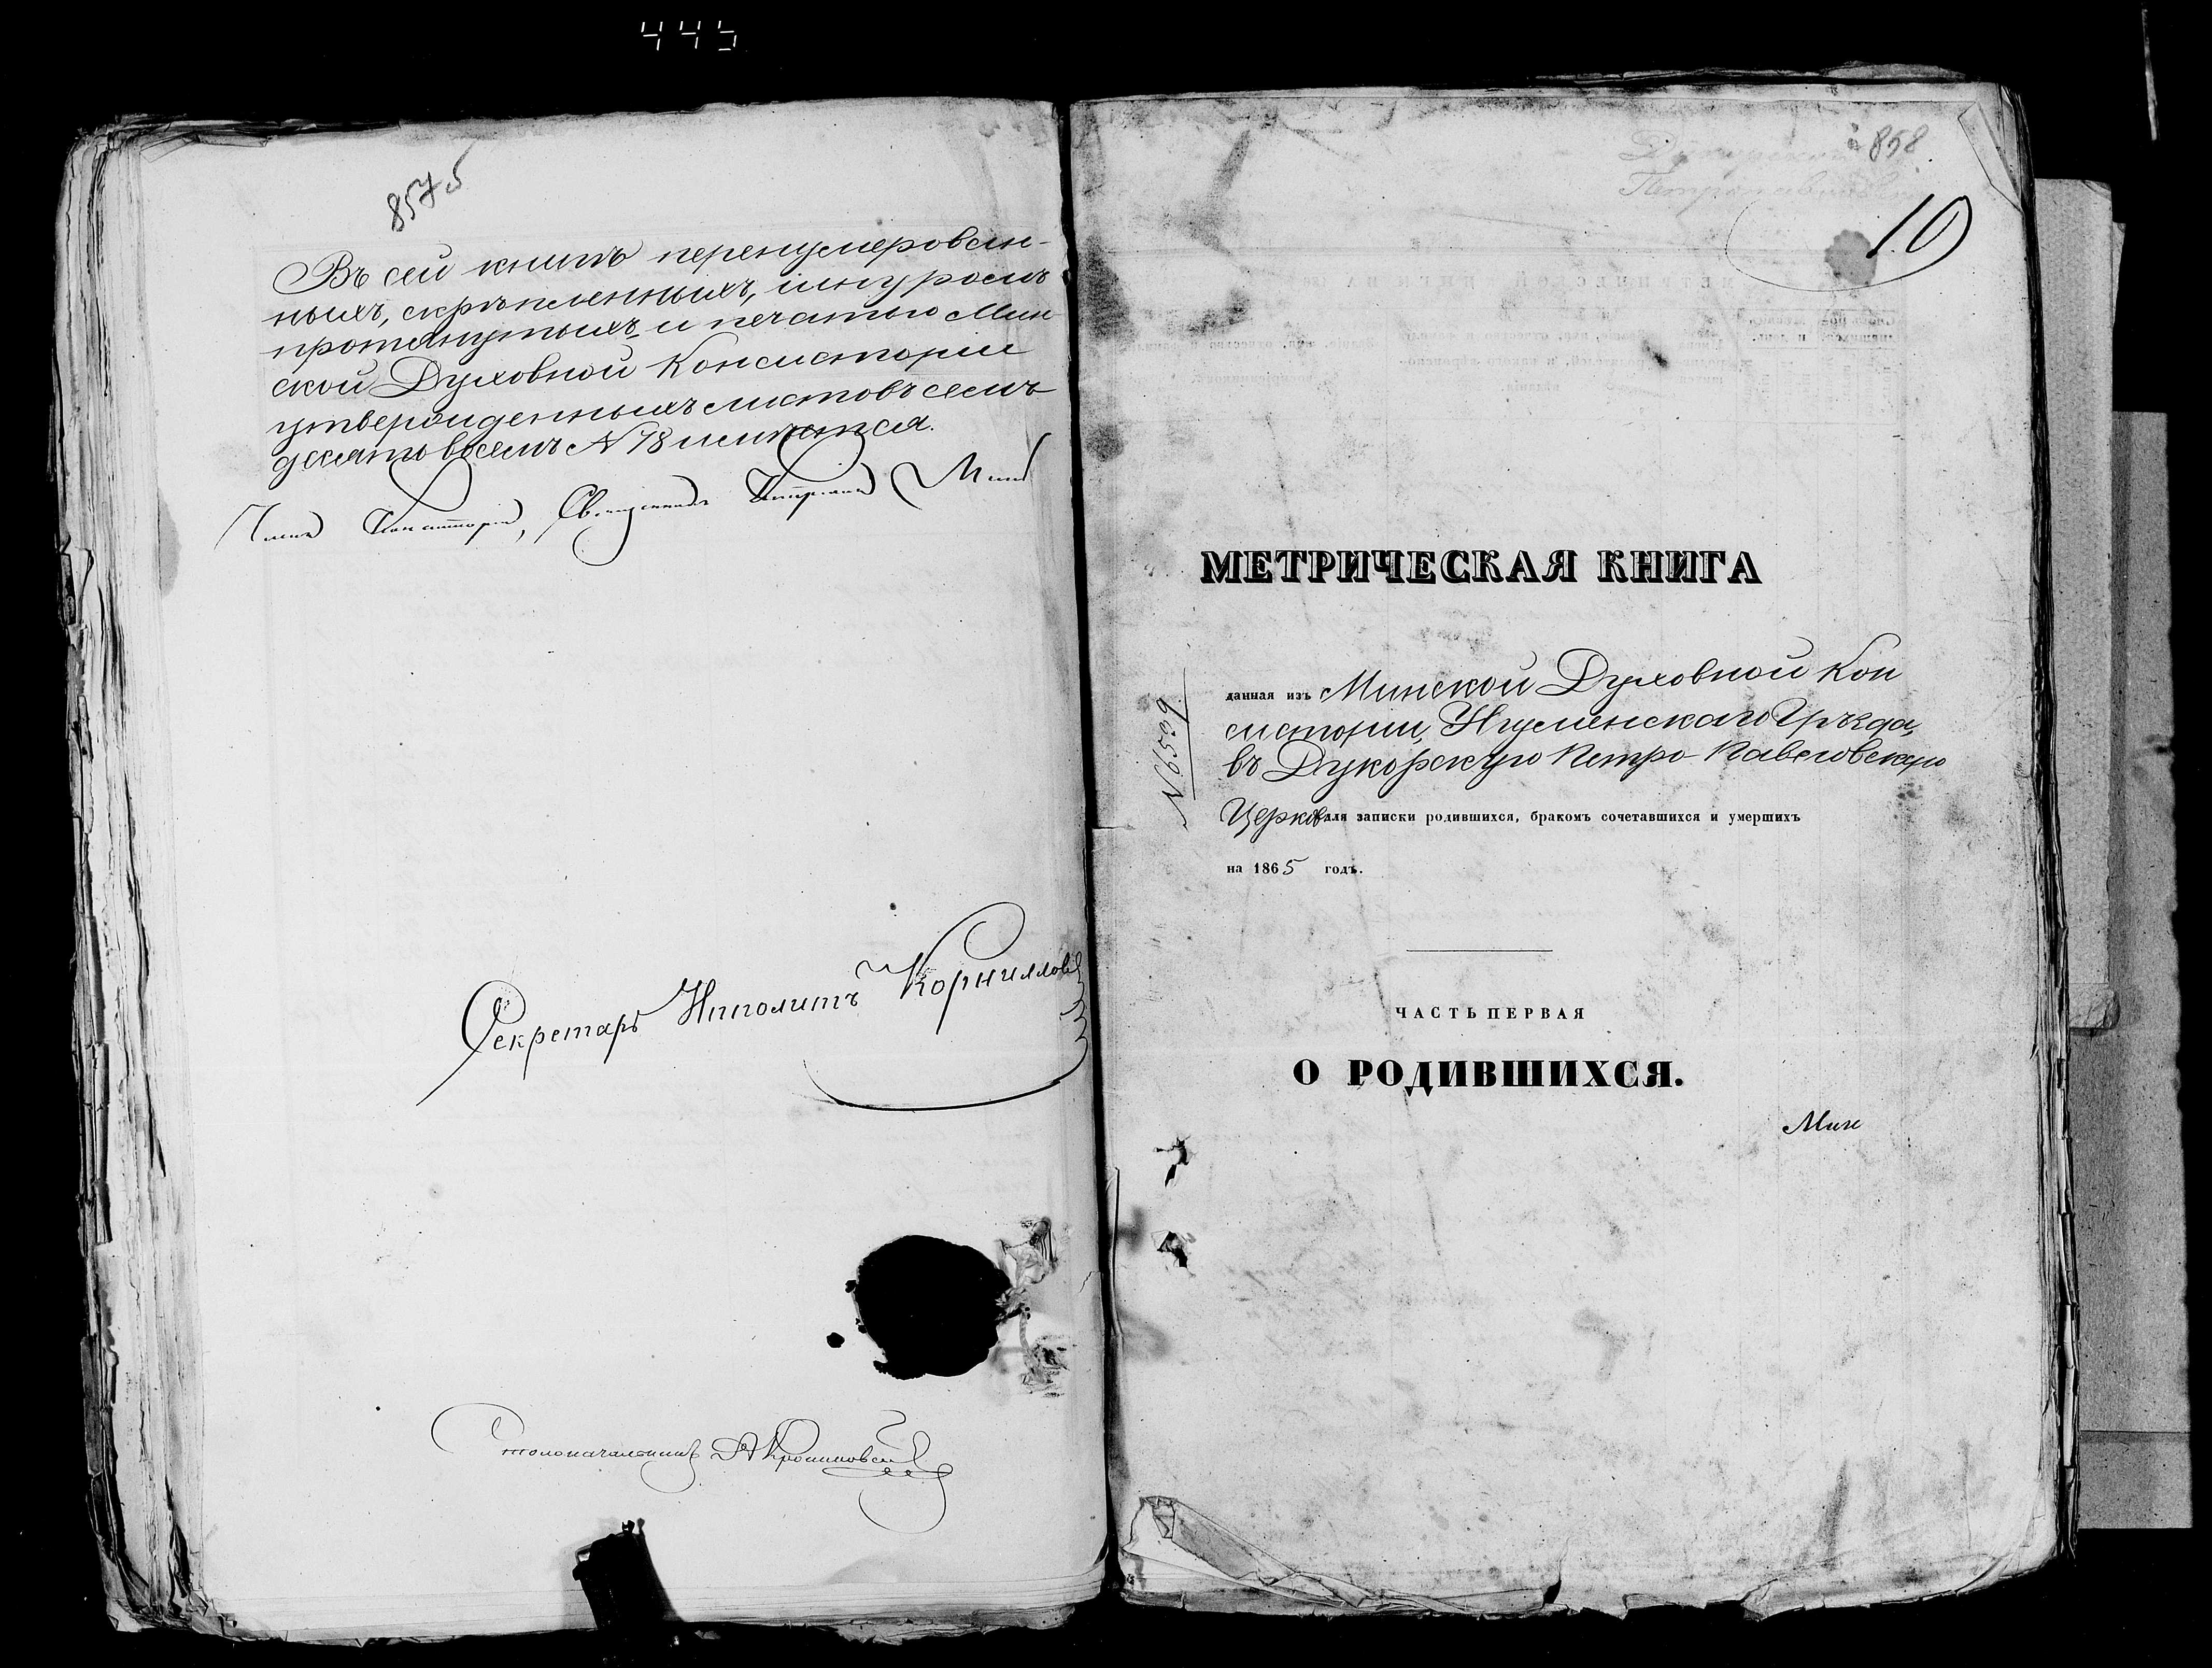 445
857 об
Въ сей книгѣ перенумерован-
ныхъ, скрѣпленныхъ, шнуромъ
протянутыхъ и печатью Мин
ской Духовной Консисторіи
утвержденныхъ листовъ семь
десятъ восемь N 78 числится.
Членъ Консисторіи, Священникъ
Секретарь Ипполитъ Корнилловъ
Столоначальникъ
858
10
МЕТРИЧЕСКАЯ КНИГА
данная изъ Минской Духовной Кон
систоріи, Игуменскаго Уѣзда,
въ Дукорскую Петро-Павловскую
Церковь для записки родившихся, бракомъ сочетавшихся и умершихъ
на 1865 годъ.
ЧАСТЬ ПЕРВАЯ
О РОДИВШИХСЯ.
Мин